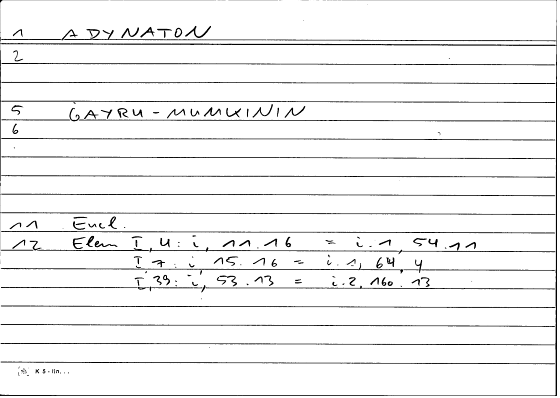 1 ADYNATON
2
5 ĠAYRU-MUMKININ
6
11 Eucl.
12 Elem I, 4: i, 11.16 = i.1, 54.11
I 7: i, 15.16 = i.1, 64,4
I,39: i, 53.13 = i.2, 160.13
K 5 - lin...